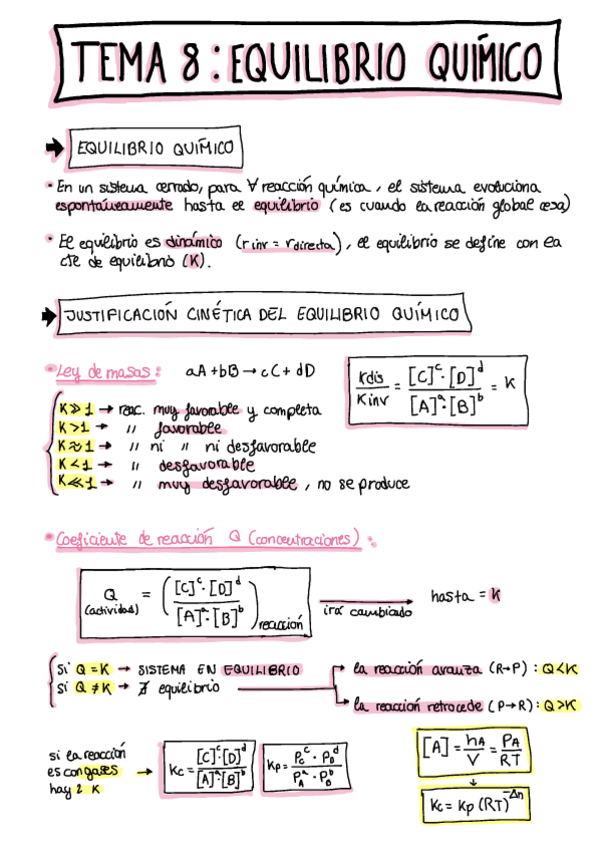 TEMA 8: EQUILIBRIO QUÍMICO
→ EQUILIBRIO QUÍMICO
• En un sistema cerrado, para ∀ reacción química, el sistema evoluciona
espontáneamente hasta el equilibrio (es cuando la reacción global cesa)
• El equilibrio es dinámico (r inv = r directa), el equilibrio se define con la
cte de equilibrio (K).
→ JUSTIFICACIÓN CINÉTICA DEL EQUILIBRIO QUÍMICO
• Ley de masas: aA + bB → cC + dD
Kdis / Kinv = [C]^c · [D]^d / [A]^a · [B]^b = K
K ≫ 1 → reac. muy favorable y completa
K > 1 → " favorable
K ≈ 1 → " ni " ni desfavorable
K < 1 → " desfavorable
K ≪ 1 → " muy desfavorable, no se produce
• Coeficiente de reacción Q (concentraciones):
Q (actividad) = ([C]^c · [D]^d / [A]^a · [B]^b) reacción → irá cambiado hasta = K
si Q = K → SISTEMA EN EQUILIBRIO
si Q ≠ K → ∄ equilibrio
→ la reacción avanza (R→P): Q<K
→ la reacción retrocede (P→R): Q>K
si la reacción
es con gases →
hay 2 K
Kc = [C]^c · [D]^d / [A]^a · [B]^b
Kp = Pc^c · PD^d / PA^a · PB^b
[A] = nA / V = PA / RT
↓
Kc = Kp (RT)^-Δn